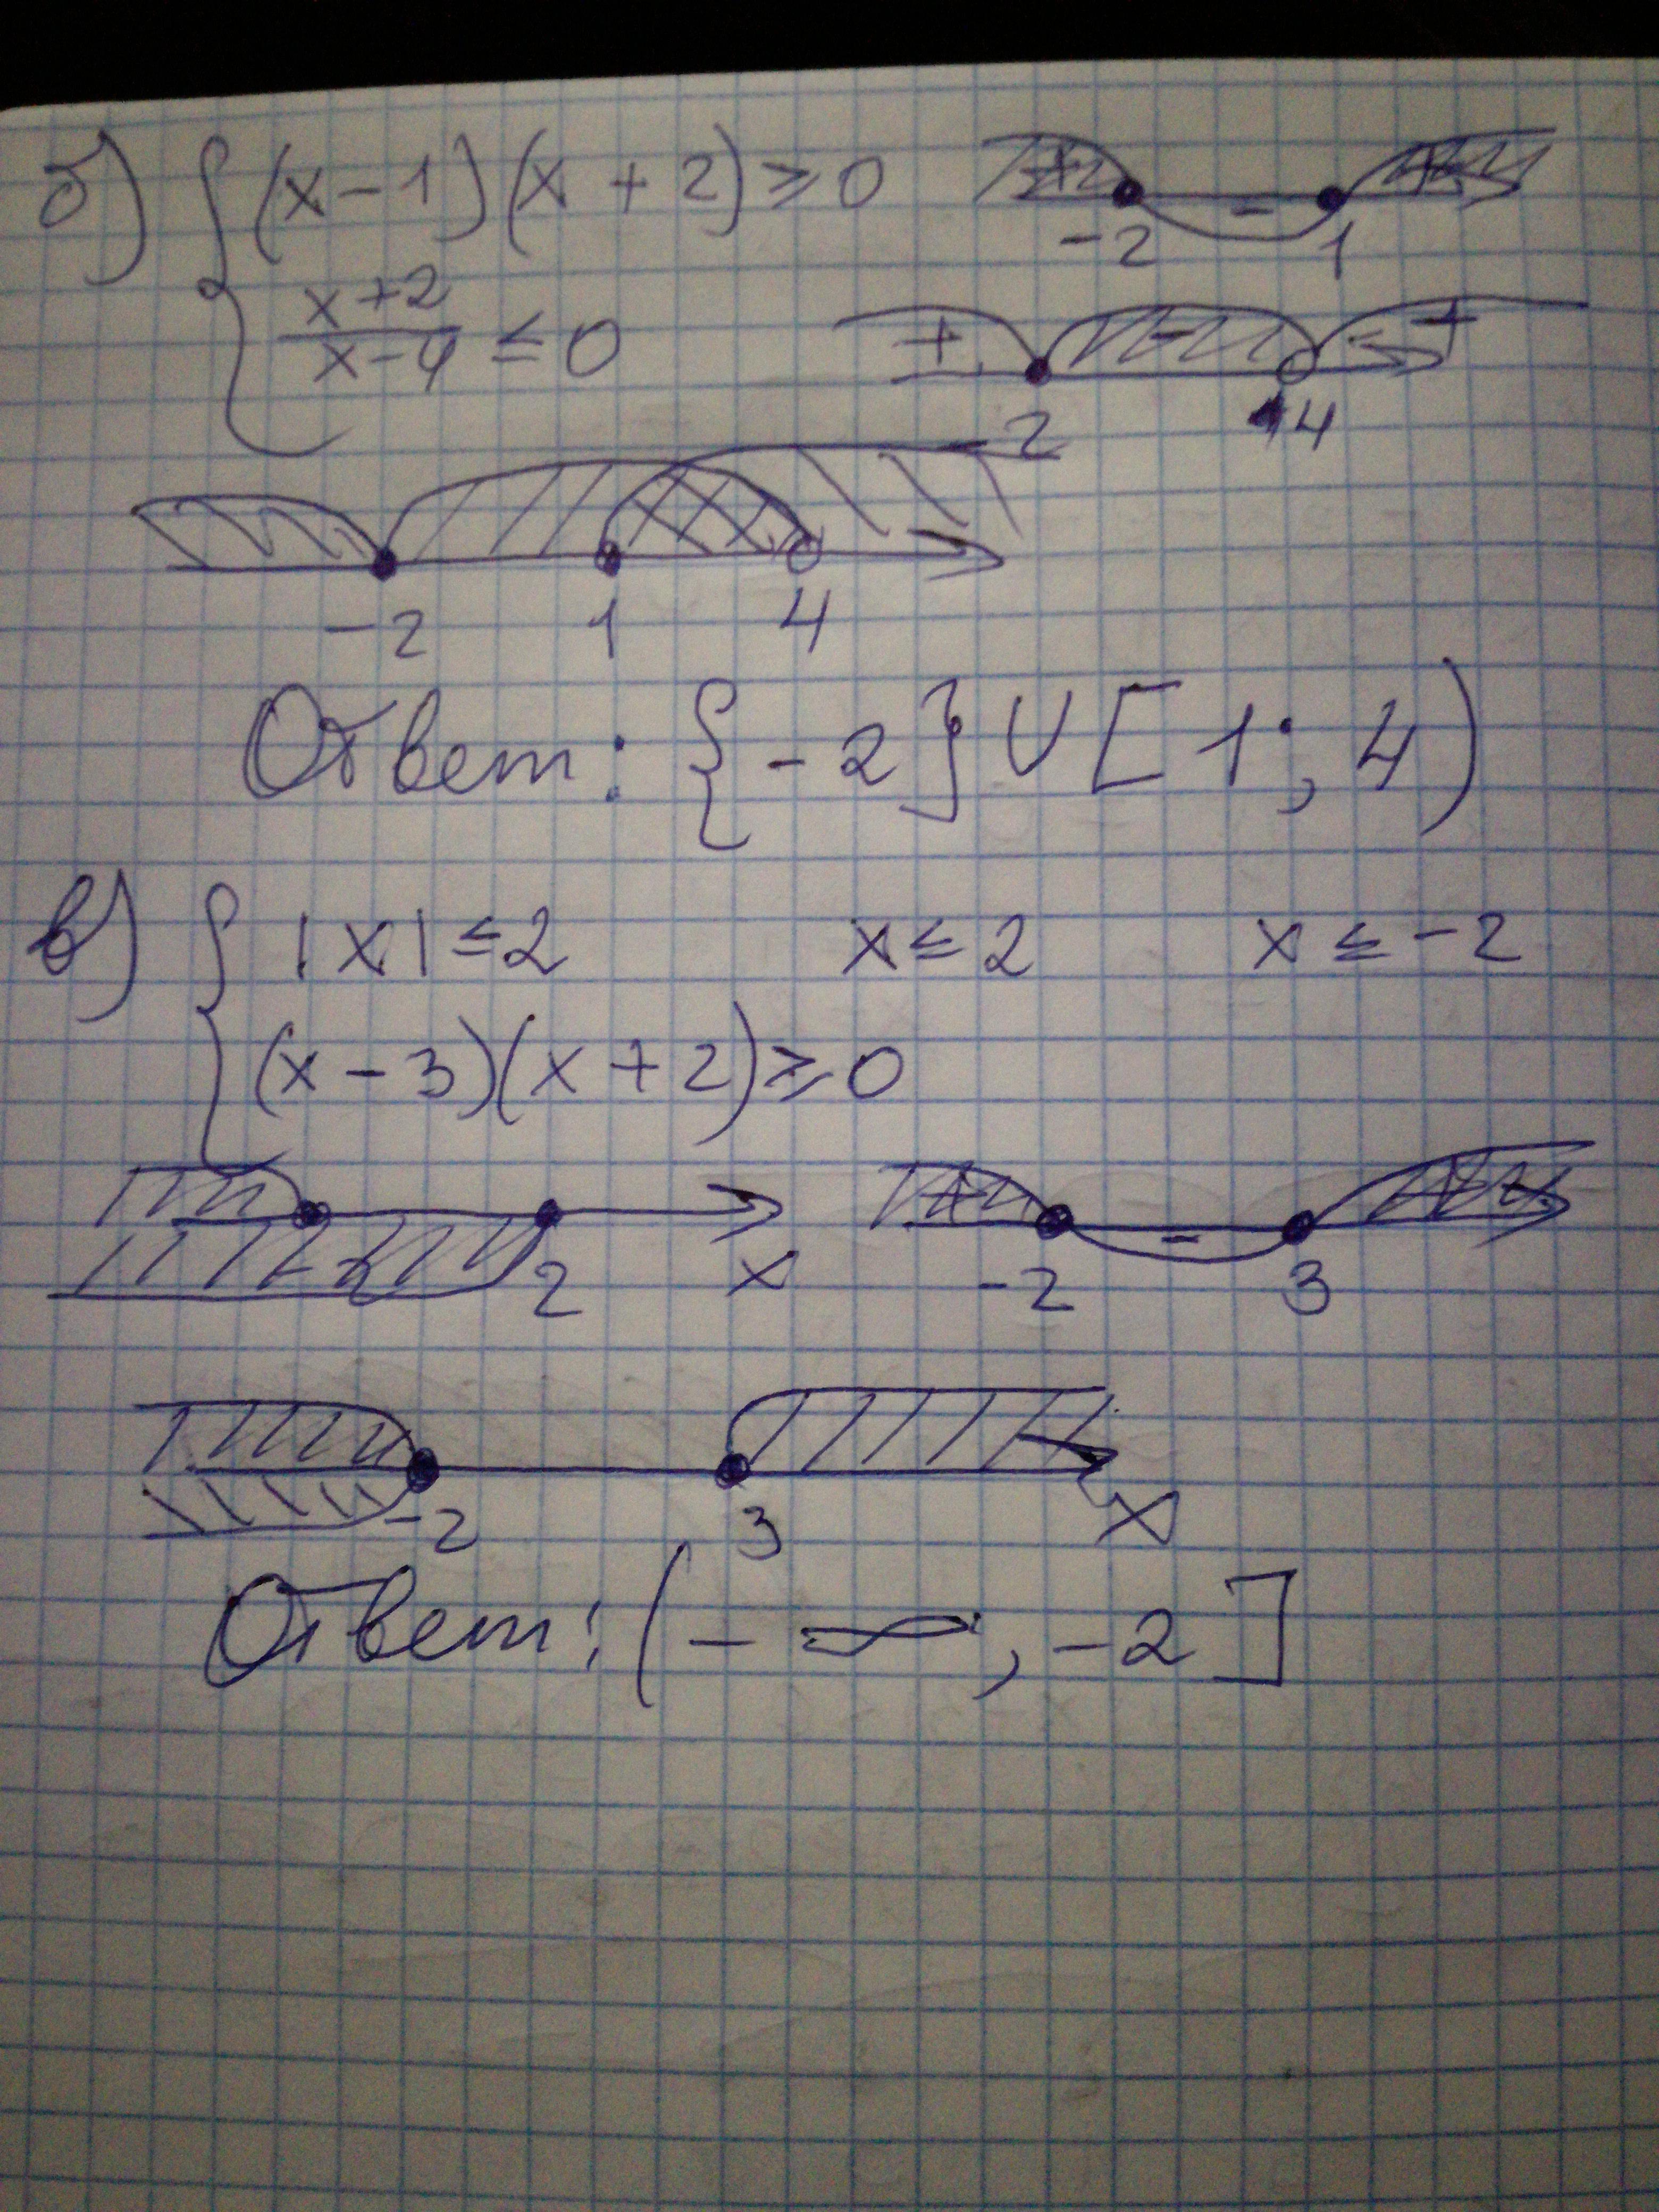 б) { (x-1)(x+2)≥0
+ - +
-2 1
x+2
x-4 ≤0
+ - +
-2 4
-2 1 4
Ответ: {-2}∪[1; 4)
в) { |x|≤2 x≤2 x≤-2
(x-3)(x+2)≥0
-2 2 x
+ - +
-2 3
-2 3 x
Ответ: (-∞; -2]